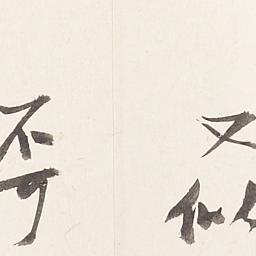 又似
不可